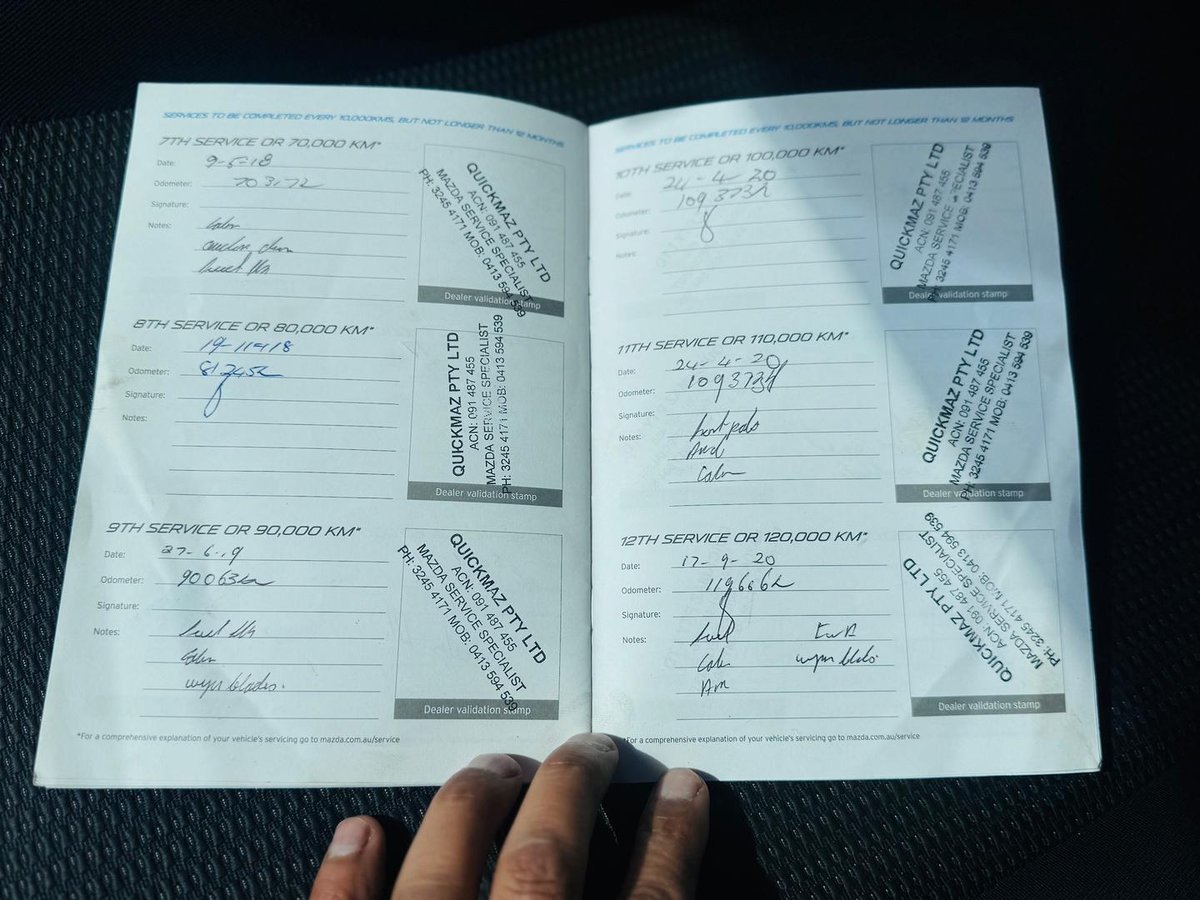 SERVICES TO BE COMPLETED EVERY 10,000KMS, BUT NOT LONGER THAN 12 MONTHS
7TH SERVICE OR 70,000 KM*
Date: 9-5-18
Odometer: 70372
Signature:
Notes:
QUICKMAZ PTY LTD
ACN: 091 487 455
MAZDA SERVICE SPECIALIST
PH: 3245 4171 MOB: 0413 594 539
Dealer validation stamp
8TH SERVICE OR 80,000 KM*
Date: 19-11-18
Odometer:
Signature:
Notes:
QUICKMAZ PTY LTD
ACN: 091 487 455
MAZDA SERVICE SPECIALIST
PH: 3245 4171 MOB: 0413 594 539
Dealer validation stamp
9TH SERVICE OR 90,000 KM*
Date: 27-6-19
Odometer: 90063km
Signature:
Notes:
wyper blades.
QUICKMAZ PTY LTD
ACN: 091 487 455
MAZDA SERVICE SPECIALIST
PH: 3245 4171 MOB: 0413 594 539
Dealer validation stamp
*For a comprehensive explanation of your vehicle's servicing go to mazda.com.au/service
SERVICES TO BE COMPLETED EVERY 10,000KMS, BUT NOT LONGER THAN 12 MONTHS
10TH SERVICE OR 100,000 KM*
Date: 24-4-20
Odometer: 109373k
Signature:
Notes:
QUICKMAZ PTY LTD
ACN: 091 487 455
MAZDA SERVICE SPECIALIST
PH: 3245 4171 MOB: 0413 594 539
Dealer validation stamp
11TH SERVICE OR 110,000 KM*
Date: 24-4-20
Odometer: 109373k
Signature:
Notes:
QUICKMAZ PTY LTD
ACN: 091 487 455
MAZDA SERVICE SPECIALIST
PH: 3245 4171 MOB: 0413 594 539
Dealer validation stamp
12TH SERVICE OR 120,000 KM*
Date: 17-9-20
Odometer: 119666k
Signature:
Notes: fuel
wyper blades
QUICKMAZ PTY LTD
ACN: 091 487 455
MAZDA SERVICE SPECIALIST
PH: 3245 4171 MOB: 0413 594 539
Dealer validation stamp
*For a comprehensive explanation of your vehicle's servicing go to mazda.com.au/service